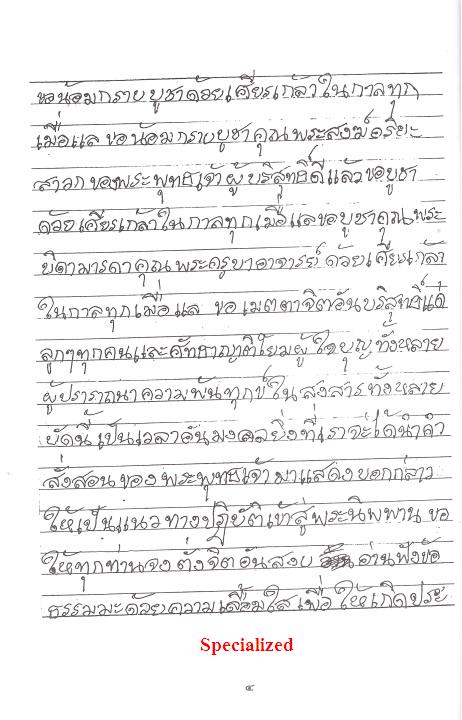 ขอน้อมกราบบูชาด้วยเศียรเกล้าในกาลทุก
เมื่อแล ขอน้อมกราบบูชาคุณพระสงฆ์อริยะ
สาวกของพระพุทธเจ้าผู้บริสุทธิ์ดีแล้วขอบูชา
ด้วยเศียรเกล้าในกาลทุกเมื่อแลขอบูชาคุณพระ
บิดามารดาคุณพระครูบาอาจารย์ด้วยเศียรเกล้า
ในกาลทุกเมื่อแล ขอเมตตาจิตอันบริสุทธิ์แด่
ลูกๆทุกคนและศัทธาญาติโยมผู้ใจบุญทั้งหลาย
ผู้ปรารถนาความพ้นทุกข์ในสงสารทั้งหลาย
บัดนี้เป็นเวลาอันมงคลยิ่งที่เราจะได้นำคำ
สั่งสอนของพระพุทธเจ้ามาแสดงบอกกล่าว
ให้เป็นแนวทางปฏิบัติเข้าสู่พระนิพพาน ขอ
ให้ทุกท่านจงตั้งจิตอันสงบ อ่านฟังข้อ
ธรรมมะด้วยความเลื่อมใสเพื่อให้เกิดประ
Specialized
๔